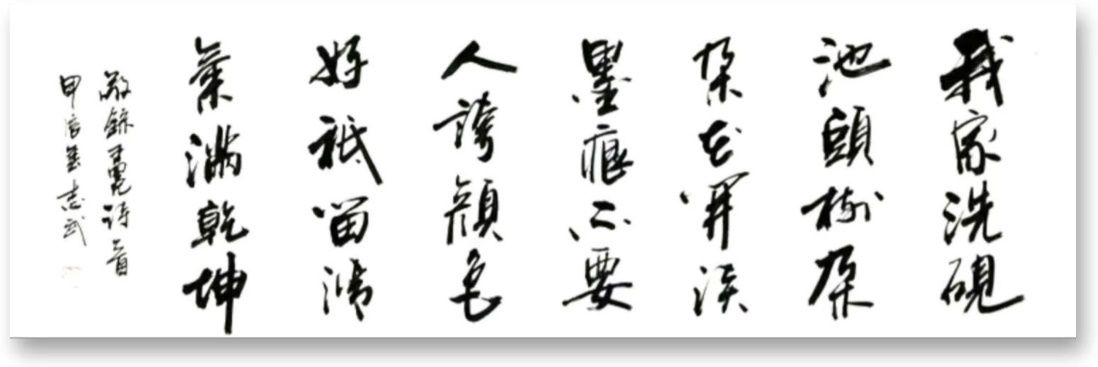 我家洗硯
池頭樹朵
朵花開淡
墨痕不要
人誇顏色
好祇留清
氣滿乾坤
敬錄王冕詩一首
甲志武